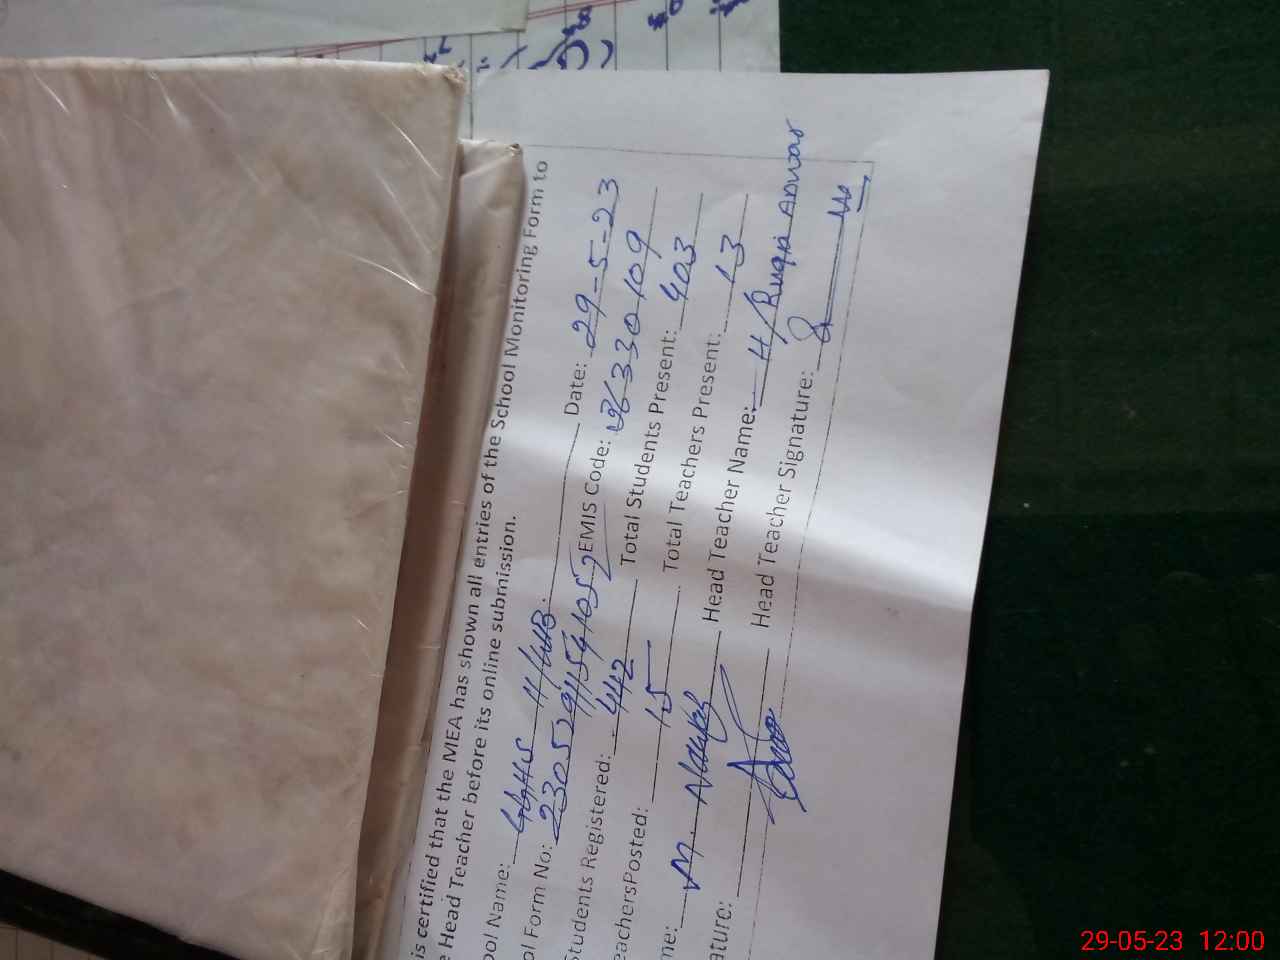 is certified that the MEA has shown all entries of the School Monitoring Form to
e Head Teacher before its online submission.
ool Name: GGHS 11/WB. Date: 29-5-23
ol Form No: 23052911541052 EMIS Code: 36330109
Students Registered: 442 Total Students Present: 403
eachersPosted: 15 Total Teachers Present: 13
me: M. Head Teacher Name: H/Ruqia Anwar
ature: Head Teacher Signature:
29-05-23 12:00